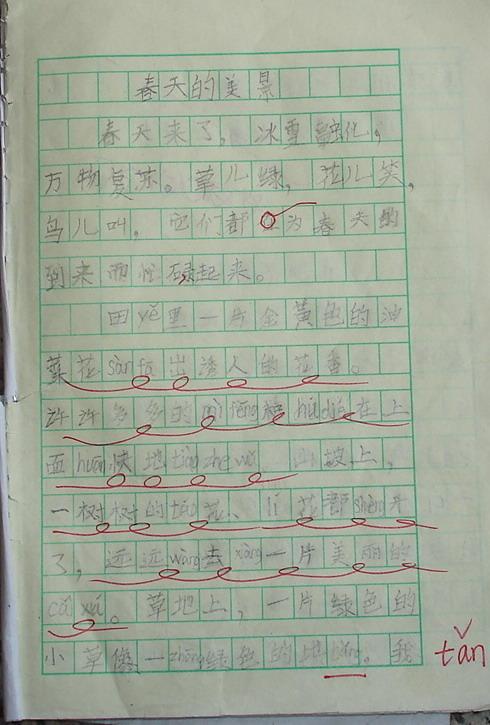 春天的美景
春天来了，冰雪融化，
万物复苏。草儿绿，花儿笑，
鸟儿叫，它们都为春天的
到来而忙碌起来。
田yě里一片金黄色的油
菜花sàn fā出诱人的花香。
许许多多的mì fēng和hú dié在上
面huān快地tiào zhe wǔ。山坡上，
一树树的táo花、lí花都shèng开
了，远远wàng去xiàng一片美丽的
cǎi xiá。草地上，一片绿色的
小草像一zhāng绿色的地
。我
tǎn